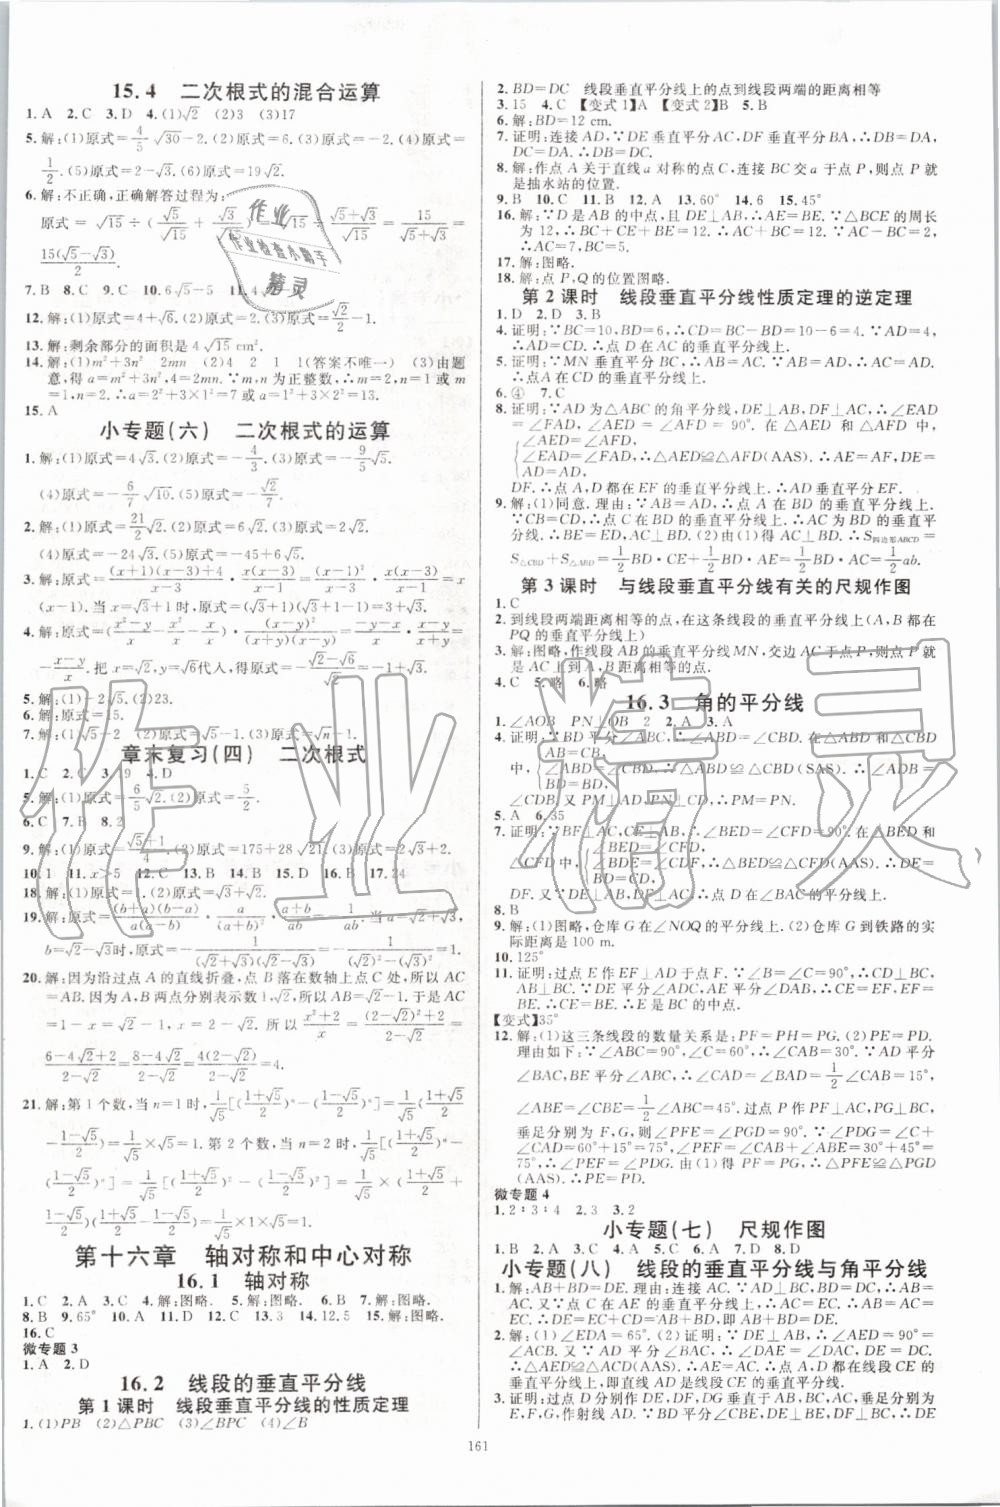 15.4 二次根式的混合运算
1.A 2.C 3.D 4.(1)√2 (2)3 (3)17
5.解:(1)原式=4/5√30-2.(2)原式=6.(3)原式=6.(4)原式=
1/2.(5)原式=2-√3.(6)原式=19√2.
6.解:不正确,正确解答过程为:
原式=√15÷(√5/√15+√3/√15)=√15÷(√5+√3)/√15=15/(√5+√3)=
15(√5-√3)/2.
7.B 8.C 9.C 10.6√5-5
12.解:(1)原式=4+√6.(2)原式=2.(3)原式=√2/2+1.
13.解:剩余部分的面积是4√15 cm².
14.解:(1)m²+3n² 2mn (2)4 2 1 1(答案不唯一) (3)由题
意,得a=m²+3n²,4=2mn.∵m,n为正整数,∴m=2,n=1或m
=1,n=2.∴a=2²+3×1²=7或a=1²+3×2²=13.
15.A
小专题(六) 二次根式的运算
1.解:(1)原式=4√3.(2)原式=-4/3.(3)原式=-9/5√5.
(4)原式=-6/7√10.(5)原式=-√2/2.
2.解:(1)原式=21/2√2.(2)原式=6√2.(3)原式=2√2.
(4)原式=-24√3.(5)原式=-45+6√5.
3.解:原式=(x+1)(x-3)+4/(x-3)·x(x-3)/(x-1)=(x-1)²/(x-3)·x(x-3)/(x-1)=
x(x-1).当x=√3+1时,原式=(√3+1)(√3+1-1)=3+√3.
5.解:(1)-2√5.(2)23.
6.解:原式=15.
7.解:(1)√5-2 (2)原式=√3-√2.(3)原式=√n-1.
章末复习(四) 二次根式
1.C 2.C 3.9 4.D
5.解:(1)原式=6/5√2.(2)原式=5/2.
6.C 7.B 8.2
9.解:(1)原式=(√5+1)/4.(2)原式=175+28√21.(3)原式=2√3+2.
10.1 11.x>5 12.C 13.B 14.B 15.D 16.B 17.24
18.解:(1)原式=√3.(2)原式=√3+√2.
19.解:原式=(b+a)(b-a)/a(a-b)÷(a²+2ab+b²)/a
20.解:因为沿过点A的直线折叠,点B落在数轴上点C处,所以AC
=AB.因为A,B两点分别表示数1,√2,所以AB=√2-1.于是AC
=1-x=√2-1,所以x=2-√2.所以(x²+2)/x=((2-√2)²+2)/(2-√2)=
(6-4√2+2)/(2-√2)=(8-4√2)/(2-√2)=4(2-√2)/(2-√2)=4.
21.解:第1个数,当n=1时,1/√5[((1+√5)/2)ⁿ-((1-√5)/2)ⁿ]=1/√5((1+√5)/2
-(1-√5)/2)=1/√5×√5=1.第2个数,当n=2时,1/√5[((1+√5)/2)ⁿ-
((1-√5)/2)ⁿ]=1/√5[((1+√5)/2)²-((1-√5)/2)²]=1/√5×((1+√5)/2+
(1-√5)/2)((1+√5)/2-(1-√5)/2)=1/√5×1×√5=1.
第十六章 轴对称和中心对称
16.1 轴对称
1.C 2.A 3.C 4.解:图略. 5.解:图略. 6.C 7.解:图略.
8.B 9.65° 10.A 11.D 12.C 13.8 14.12.5 15.解:图略.
16.C
微专题3
1.A 2.D
16.2 线段的垂直平分线
第1课时 线段垂直平分线的性质定理
1.(1)PB (2)△PBC (3)∠BPC (4)∠B
2.BD=DC 线段垂直平分线上的点到线段两端的距离相等
3.15 4.C 【变式1】A 【变式2】B 5.B
6.解:BD=12 cm.
7.证明:连接AD,∵DE垂直平分AC,DF垂直平分BA,∴DB=DA,
DC=DA.∴DB=DC.
8.解:作点A关于直线a对称的点C,连接BC交a于点P,则点P就
是抽水站的位置.
9.B 10.C 11.B 12.A 13.60° 14.6 15.45°
16.解:∵D是AB的中点,且DE⊥AB,∴AE=BE.∵△BCE的周长
为12,∴BC+CE+BE=12.∴BC+AC=12.∵AC-BC=2,
∴AC=7,BC=5.
17.解:图略.
18.解:点P,Q的位置图略.
第2课时 线段垂直平分线性质定理的逆定理
1.D 2.D 3.B
4.证明:∵BC=10,BD=6,∴CD=BC-BD=10-6=4.∵AD=4,
∴AD=CD.∴点D在AC的垂直平分线上.
5.证明:∵MN垂直平分BC,∴AC=AB.∵AB=AD,∴AC=AD.
∴点A在CD的垂直平分线上.
6.④ 7.C
8.证明:∵AD为△ABC的角平分线,DE⊥AB,DF⊥AC,∴∠EAD
=∠FAD,∠AED=∠AFD=90°.在△AED和△AFD中,
∠AED=∠AFD,
∠EAD=∠FAD,∴△AED≌△AFD(AAS).∴AE=AF,DE=
AD=AD,
DF.∴点A,D都在EF的垂直平分线上.∴AD垂直平分EF.
9.解:(1)同意.理由:∵AB=AD,∴点A在BD的垂直平分线上.
∵CB=CD,∴点C在BD的垂直平分线上.∴AC为BD的垂直平
分线.∴BE=ED,AC⊥BD.(2)由(1)得AC⊥BD.∴S四边形ABCD=
S△CBD+S△ABD=1/2BD·CE+1/2BD·AE=1/2BD·AC=1/2ab.
第3课时 与线段垂直平分线有关的尺规作图
1.C
2.到线段两端距离相等的点,在这条线段的垂直平分线上(A,B都在
PQ的垂直平分线上)
3.解:图略,作线段AB的垂直平分线MN,交边AC于点P,则点P就
是AC上到A,B距离相等的点.
4.C 5.略 6.略
16.3 角的平分线
1.∠AOB PN⊥OB 2 2.A 3.A
4.证明:∵BD平分∠ABC,∴∠ABD=∠CBD.在△ABD和△CBD
中,AB=CB,∠ABD=∠CBD,BD=BD,∴△ABD≌△CBD(SAS).∴∠ADB=
∠CDB.又PM⊥AD,PN⊥CD,∴PM=PN.
5.A 6.35
7.证明:∵BF⊥AC,CE⊥AB,∴∠BED=∠CFD=90°.在△BED和
△CFD中,∠BED=∠CFD,∠BDE=∠CDF,BD=CD,∴△BED≌△CFD(AAS).∴DE=
DF.又∵DE⊥AB,DF⊥AC,∴点D在∠BAC的平分线上.
8.B
9.解:(1)图略,仓库G在∠NOQ的平分线上.(2)仓库G到铁路的实
际距离是100 m.
10.125°
11.证明:过点E作EF⊥AD于点F.∵∠B=∠C=90°,∴CD⊥BC,
AB⊥BC.∵DE平分∠ADC,AE平分∠DAB,∴CE=EF,EF=
BE.∴CE=BE.∴E是BC的中点.
【变式】35°
12.解:(1)这三条线段的数量关系是:PF=PH=PG.(2)PE=PD.
理由如下:∵∠ABC=90°,∠C=60°,∴∠CAB=30°.∵AD平分
∠BAC,BE平分∠ABC,∴∠CAD=∠BAD=1/2∠CAB=15°,
∠ABE=∠CBE=1/2∠ABC=45°.过点P作PF⊥AC,PG⊥BC,
垂足分别为F,G,则∠PFE=∠PGD=90°.∵∠PDG=∠C+
∠CAD=60°+15°=75°,∠PEF=∠BAC+∠ABE=30°+45°=
75°,∴∠PEF=∠PDG.由(1)得PF=PG,∴△PFE≌△PGD
(AAS).∴PE=PD.
微专题4
1.2∶3∶4 2.3 3.2
小专题(七) 尺规作图
1.B 2.A 3.D 4.A 5.C 6.A 7.D 8.D
小专题(八) 线段的垂直平分线与角平分线
1.解:AB+BD=DE.理由:连接AC.∵AD⊥BD,BD=DC,∴AB=
AC.又∵点C在AE的垂直平分线上,∴AC=EC.∴AB=AC=
CE.∴DE=EC+CD=AB+BD,即AB+BD=DE.
2.解:(1)∠EDA=65°.(2)证明:∵DE⊥AB,∴∠AED=90°=
∠ACB.又∵AD平分∠BAC,∴∠DAE=∠DAC.又∵AD=AD,
∴△AED≌△ACD.∴AE=AC,DE=DC.∴点A,D都在线段CE的垂直平
分线上,即直线AD是线段CE的垂直平分线.
3.证明:过点D分别作DE,DF,DG垂直于AB,BC,AC,垂足分别为
E,F,G,作射线AD.∵BD平分∠CBE,DE⊥BE,DF⊥BC,∴DE
161
作业精灵
作业检查小帮手